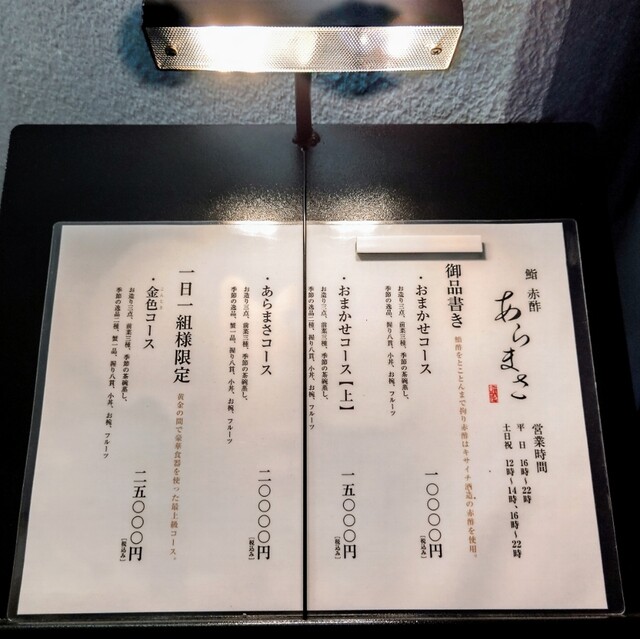 鮨 赤酢
あらまさ
営業時間
平日 16時～22時
土日祝 12時～14時、16時～22時
御品書き
鮨酢をとことんまで拘り赤酢はキサイチ酒造の赤酢を使用。
・おまかせコース
お造り三点、前菜三種、季節の茶碗蒸し、
季節の逸品、握り八貫、小丼、お椀、フルーツ
一〇〇〇〇円
【税込み】
・おまかせコース【上】
お造り三点、前菜三種、季節の茶碗蒸し、
季節の逸品二種、握り八貫、小丼、お椀、フルーツ
一五〇〇〇円
【税込み】
・あらまさコース
お造り三点、前菜三種、季節の茶碗蒸し、
季節の逸品、蟹一品、握り八貫、小丼、お椀、フルーツ
二〇〇〇〇円
【税込み】
一日一組様限定
黄金の間で豪華食器を使った最上級コース。
・金色コース
お造り三点、前菜三種、季節の茶碗蒸し、
季節の逸品二種、蟹一品、握り八貫、小丼、お椀、フルーツ
二五〇〇〇円
【税込み】